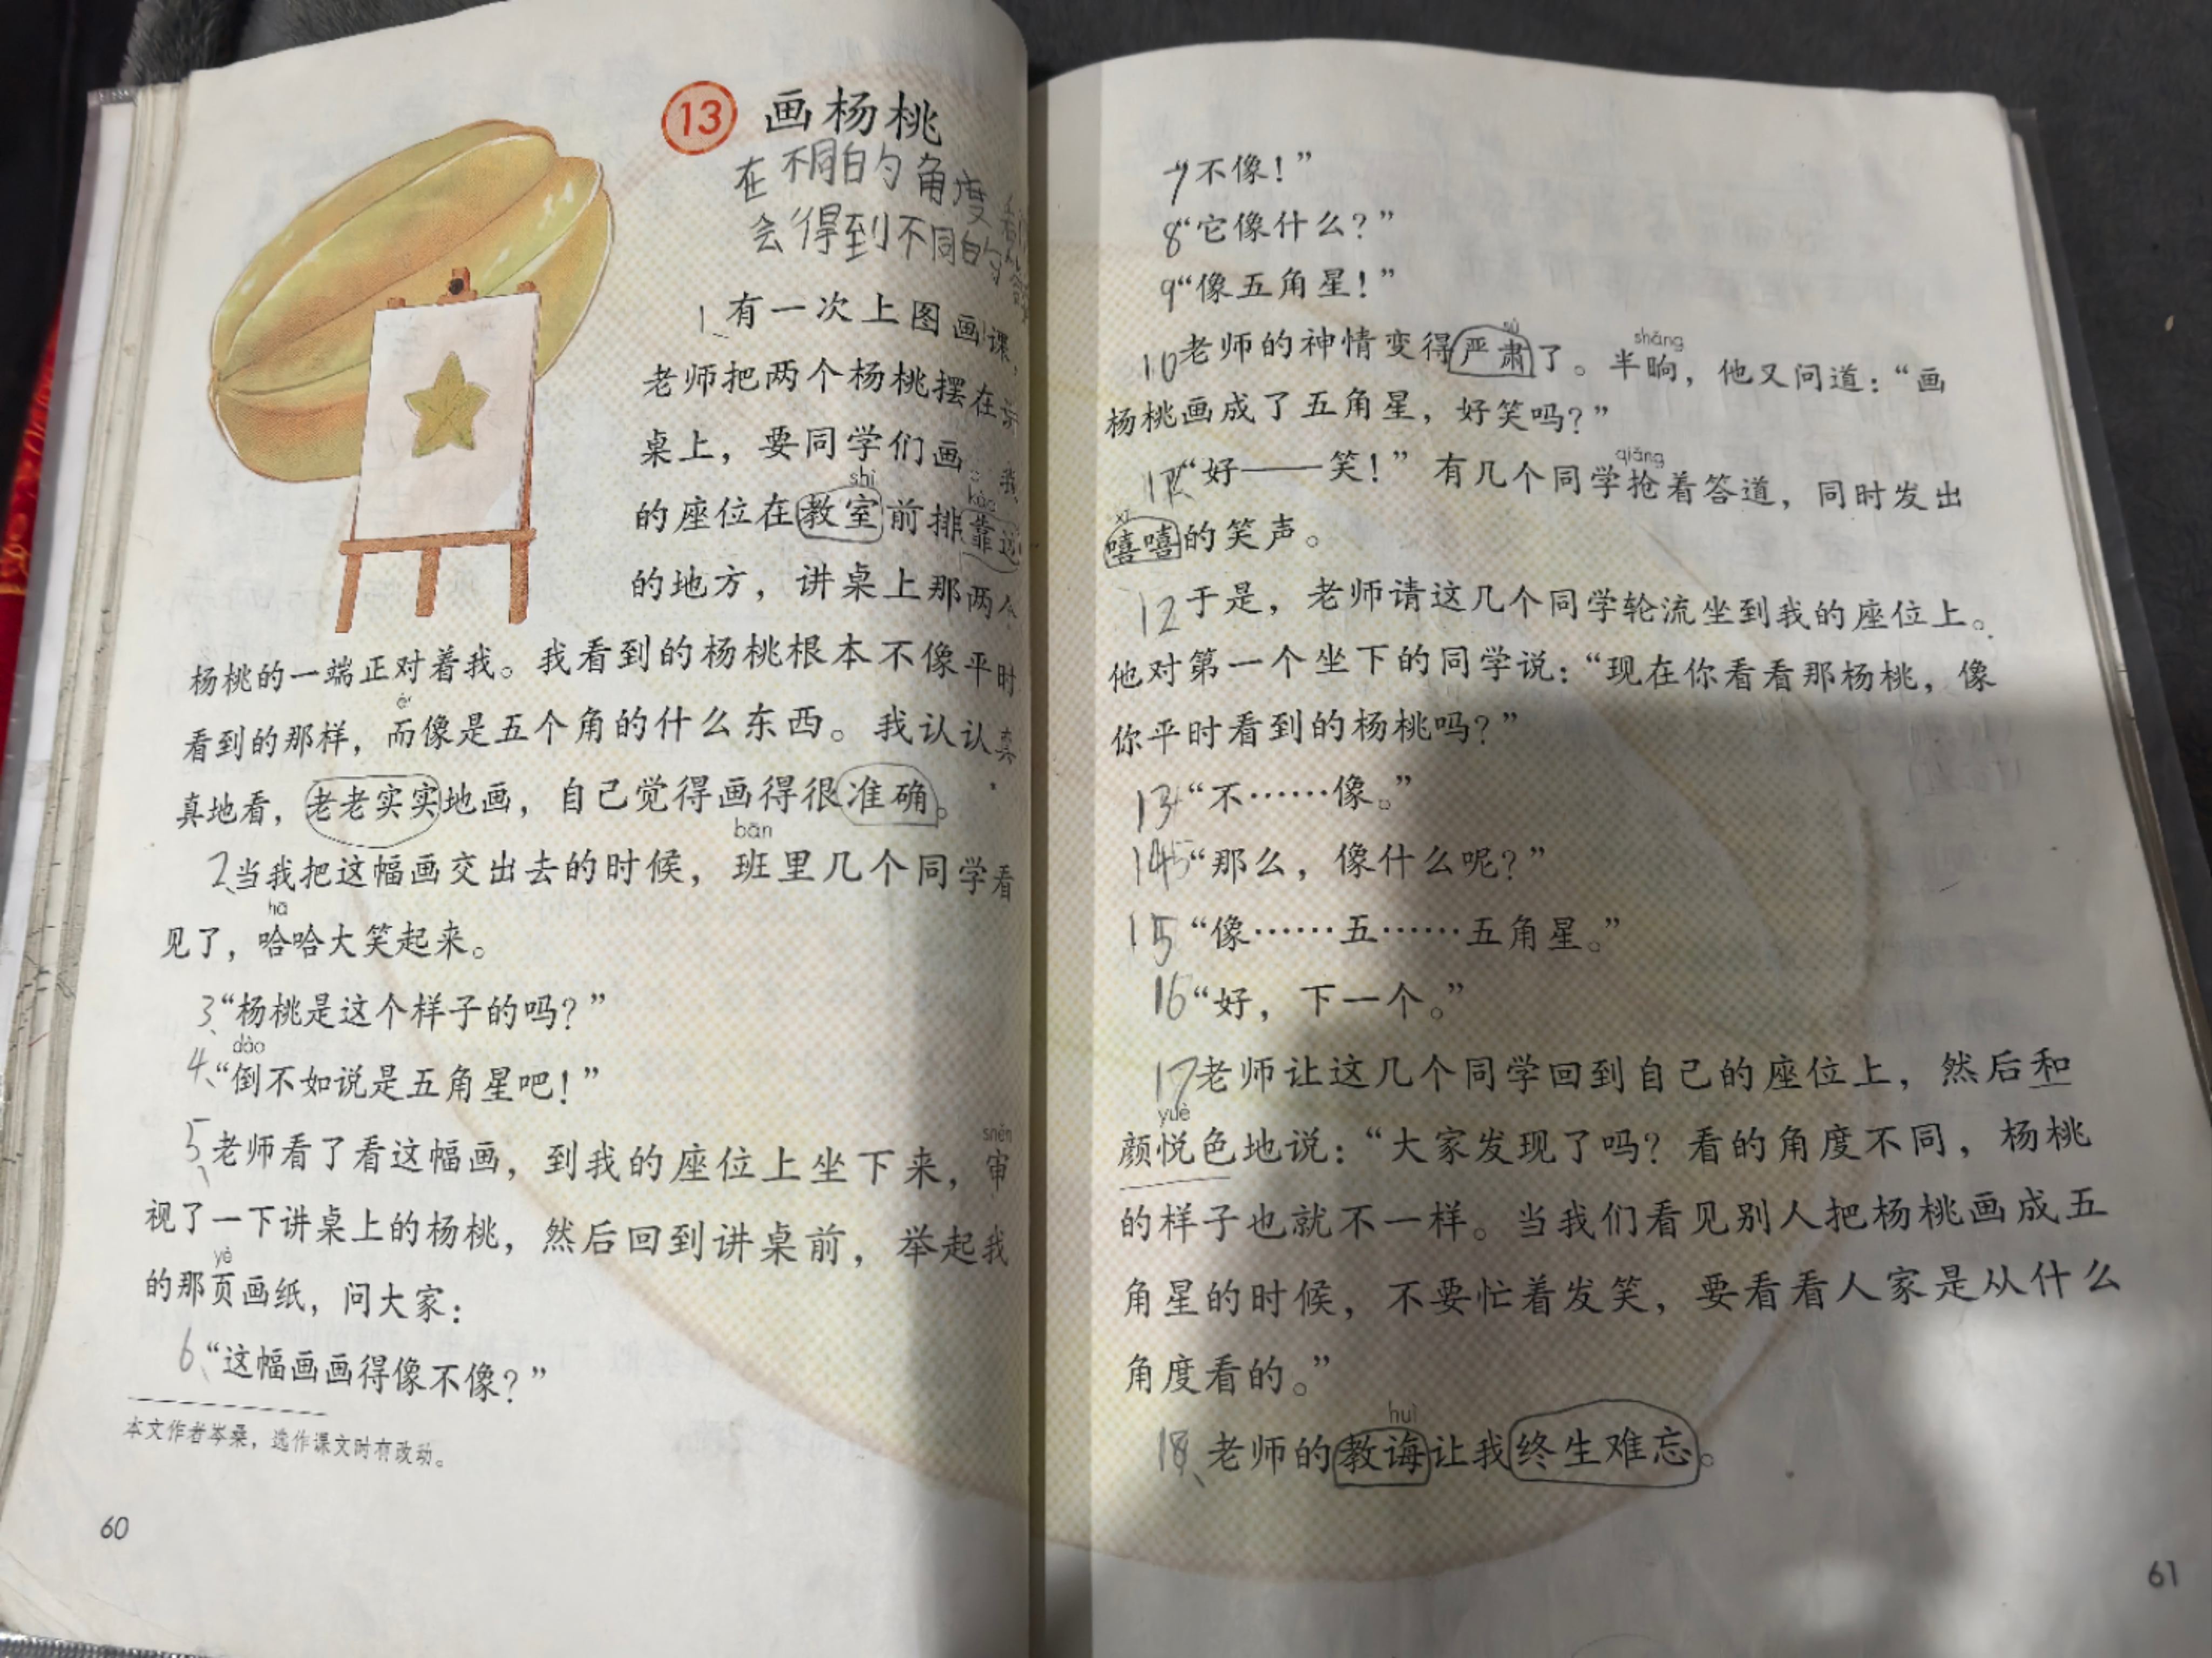 13 画杨桃
在不同的角度看
会得到不同的
1、有一次上图画课，
老师把两个杨桃摆在讲
桌上，要同学们画。我
shì kào
的座位在教室前排靠边
的地方，讲桌上那两个
杨桃的一端正对着我。我看到的杨桃根本不像平时
ér
看到的那样，而像是五个角的什么东西。我认认真
真地看，老老实实地画，自己觉得画得很准确。
bān
2、当我把这幅画交出去的时候，班里几个同学看
hā
见了，哈哈大笑起来。
3、“杨桃是这个样子的吗？”
dào
4、“倒不如说是五角星吧！”
shěn
5、老师看了看这幅画，到我的座位上坐下来，审
视了一下讲桌上的杨桃，然后回到讲桌前，举起我
yè
的那页画纸，问大家：
6、“这幅画画得像不像？”
本文作者岑桑，选作课文时有改动。
60
7“不像！”
8“它像什么？”
9“像五角星！”
sù shǎng
10老师的神情变得严肃了。半晌，他又问道：“画
杨桃画成了五角星，好笑吗？”
qiǎng
11“好——笑！”有几个同学抢着答道，同时发出
xī
嘻嘻的笑声。
12于是，老师请这几个同学轮流坐到我的座位上。
他对第一个坐下的同学说：“现在你看看那杨桃，像
你平时看到的杨桃吗？”
13“不……像。”
14“那么，像什么呢？”
15“像……五……五角星。”
16“好，下一个。”
17老师让这几个同学回到自己的座位上，然后和
yuè
颜悦色地说：“大家发现了吗？看的角度不同，杨桃
的样子也就不一样。当我们看见别人把杨桃画成五
角星的时候，不要忙着发笑，要看看人家是从什么
角度看的。”
huì
18、老师的教诲让我终生难忘。
61